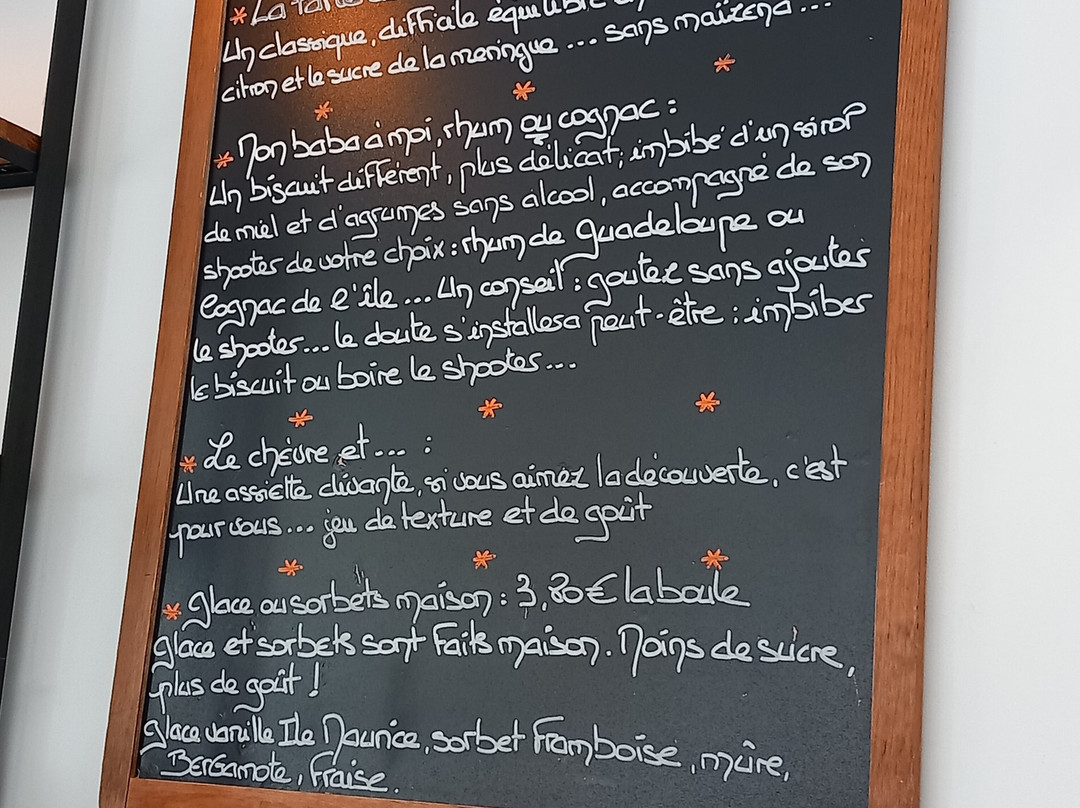 * La
Un classique, difficile équilibre
citron et le sucre de la meringue ... sans maïzena ...
* * *
* Mon baba à moi, rhum ou cognac :
Un biscuit différent, plus délicat, imbibé d'un sirop
de miel et d'agrumes sans alcool, accompagné de son
shooter de votre choix : rhum de Guadeloupe ou
Cognac de l'île ... Un conseil : goutez sans ajouter
le shooter ... le doute s'installera peut-être : imbiber
le biscuit ou boire le shooter ...
* * *
* Le chèvre et ... :
Une assiette clivante, si vous aimez la découverte, c'est
pour vous ... jeu de texture et de goût
* * *
* Glace ou sorbets maison : 3,80€ la boule
Glace et sorbets sont Faits maison. Moins de sucre,
plus de goût !
Glace vanille Ile Maurice, sorbet Framboise, mûre,
Bergamote, Fraise.